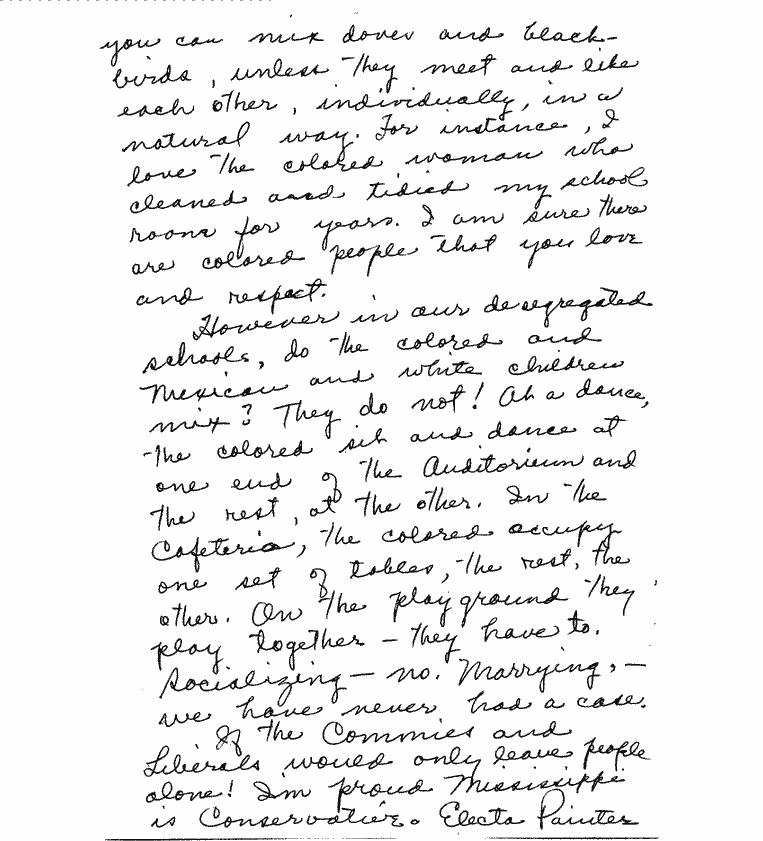 you can mix doves and black-
birds, unless they meet and like
each other, individually, in a
natural way. For instance, I
love the colored woman who
cleaned and tidied my school
room for years. I am sure there
are colored people that you love
and respect.
However in our desegregated
schools, do the colored and
Mexican and white children
mix? They do not! At a dance,
the colored sit and dance at
one end of the Auditorium and
the rest, at the other. In the
Cafeteria, the colored occupy
one set of tables, the rest, the
other. On the playground they
play together – they have to.
Socializing – no. Marrying, –
we have never had a case.
If the Commies and
Liberals would only leave people
alone! I'm proud Mississippi
is Conservative. Electa Painter